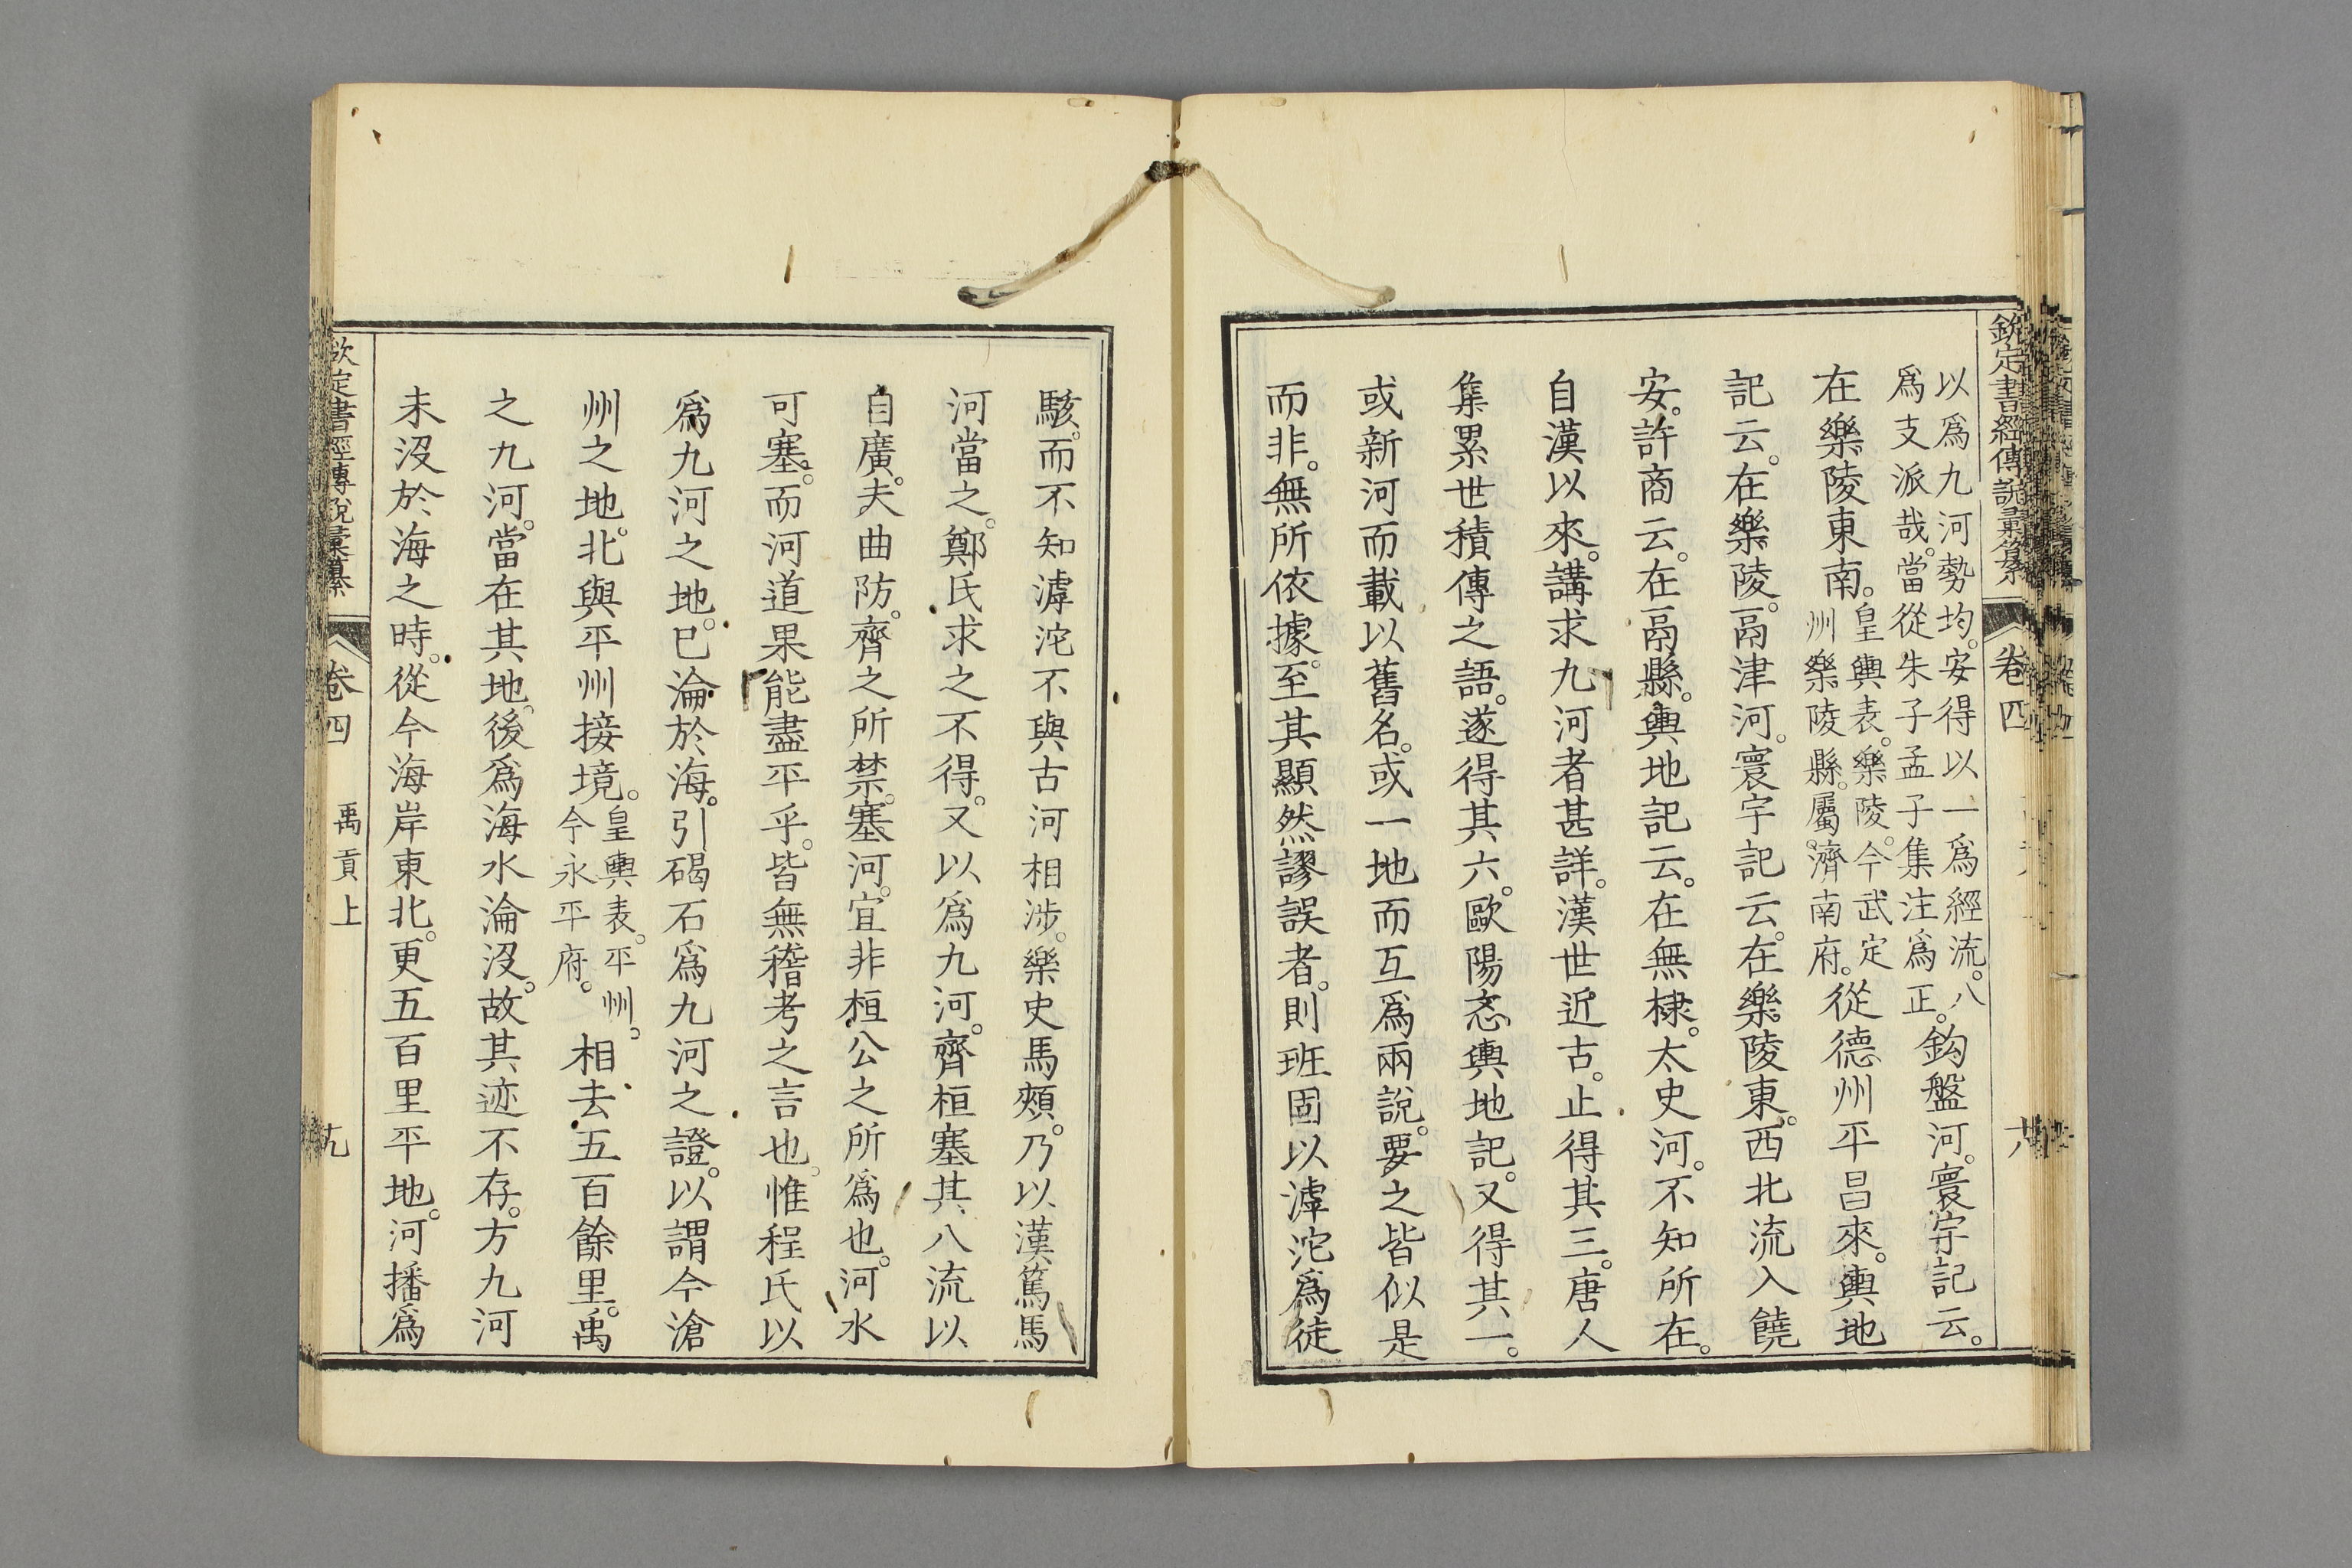 欽定書經傳說彙纂 卷四
以爲九河勢均。安得以一爲經流。八
爲支派哉。當從朱子孟子集注爲正。鈎盤河。寰宇記云。
在樂陵東南。皇輿表。樂陵。今武定
州樂陵縣。屬濟南府。從德州平昌來。輿地
記云。在樂陵。鬲津河。寰宇記云。在樂陵東。西北流入饒
安。許商云。在鬲縣。輿地記云。在無棣。太史河。不知所在。
自漢以來。講求九河者甚詳。漢世近古。止得其三。唐人
集累世積傳之語。遂得其六。歐陽忞輿地記。又得其一。
或新河而載以舊名。或一地而互爲兩說。要之皆似是
而非。無所依據。至其顯然謬誤者。則班固以滹沱爲徒
駭。而不知滹沱不與古河相涉。樂史馬頰。乃以漢篤馬
河當之。鄭氏求之不得。又以爲九河。齊桓塞其八流以
自廣。夫曲防。齊之所禁。塞河。宜非桓公之所爲也。河水
可塞。而河道果能盡平乎。皆無稽考之言也。惟程氏以
爲九河之地。已淪於海。引碣石爲九河之證。以謂今滄
州之地。北與平州接境。皇輿表。平州。
今永平府。相去五百餘里。禹
之九河。當在其地。後爲海水淪沒。故其迹不存。方九河
未沒於海之時。從今海岸東北。更五百里平地。河播爲
欽定書經傳說彙纂 卷四 禹貢上 九